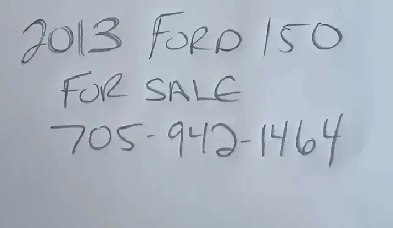 2013 FORD 150
FOR SALE
705-942-1464